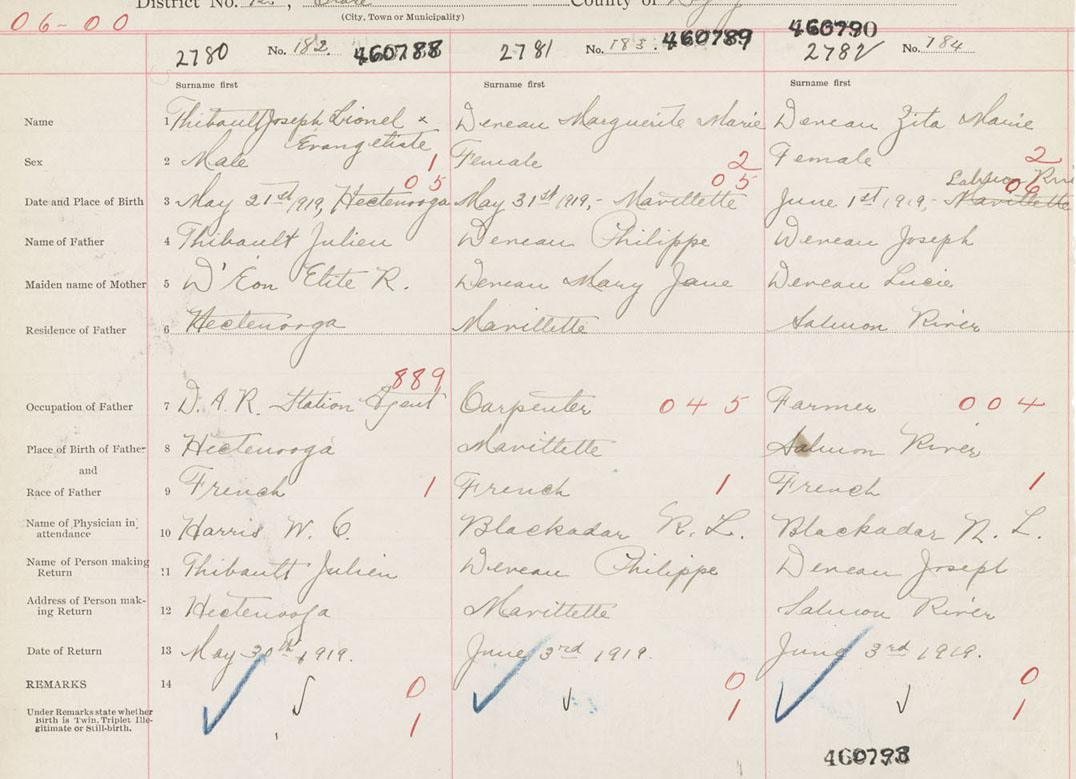 District No. 12, Clare County of Digby
(City, Town or Municipality)
06-00
2780 No. 182. 460788 2781 No. 183. 460789 460790 2782 No. 184
Surname first Surname first Surname first
Name 1 Thibault Joseph Lionel x Deveau Marguerite Marie Deveau Zita Marie
Evangeliste
Sex 2 Male 1 Female 2 Female 2
05 05 Salmon River 06
Date and Place of Birth 3 May 21st 1919, Hectenooga May 31st 1919,- Mavillette June 1st 1919,- Mavillette
Name of Father 4 Thibault Julien Deveau Philippe Deveau Joseph
Maiden name of Mother 5 D'Eon Elite R. Deveau Mary Jane Deveau Lucie
Residence of Father 6 Hectenooga Mavillette Salmon River
889
Occupation of Father 7 D. A. R. Station Agent Carpenter 045 Farmer 004
Place of Birth of Father 8 Hectenooga Mavillette Salmon River
and
Race of Father 9 French 1 French 1 French 1
Name of Physician in attendance 10 Harris W. C. Blackadar R. L. Blackadar R. L.
Name of Person making Return 11 Thibault Julien Deveau Philippe Deveau Joseph
Address of Person mak-ing Return 12 Hectenooga Mavillette Salmon River
Date of Return 13 May 30th, 1919. June 3rd 1919. June 3rd 1919.
REMARKS 14 0 0 0
Under Remarks state whether Birth is Twin, Triplet Ille-gitimate or Still-birth. 1 1 1
460793